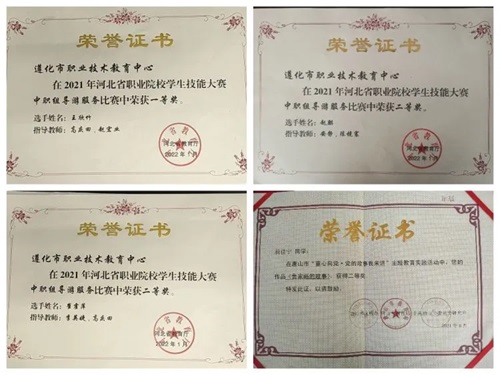 荣誉证书
遵化市职业技术教育中心
在2021年河北省职业院校学生技能大赛
中职组导游服务比赛中荣获二等奖。
选手姓名：王欣竹
指导教师：高庆田、赵宏业
河北省教育厅
2022年1月
荣誉证书
遵化市职业技术教育中心
在2021年河北省职业院校学生技能大赛
中职组导游服务比赛中荣获二等奖。
选手姓名：赵
指导教师：
2022年1月
荣誉证书
遵化市职业技术教育中心
在2021年河北省职业院校学生技能大赛
中职组导游服务比赛中荣获二等奖。
选手姓名：
指导教师：李英婕、高庆田
2022年1月
荣誉证书
同学：
在唐山市“童心向党·党的故事我来讲”主题教育实践活动中，您的
作品 获得二等奖
特发此证，以资鼓励